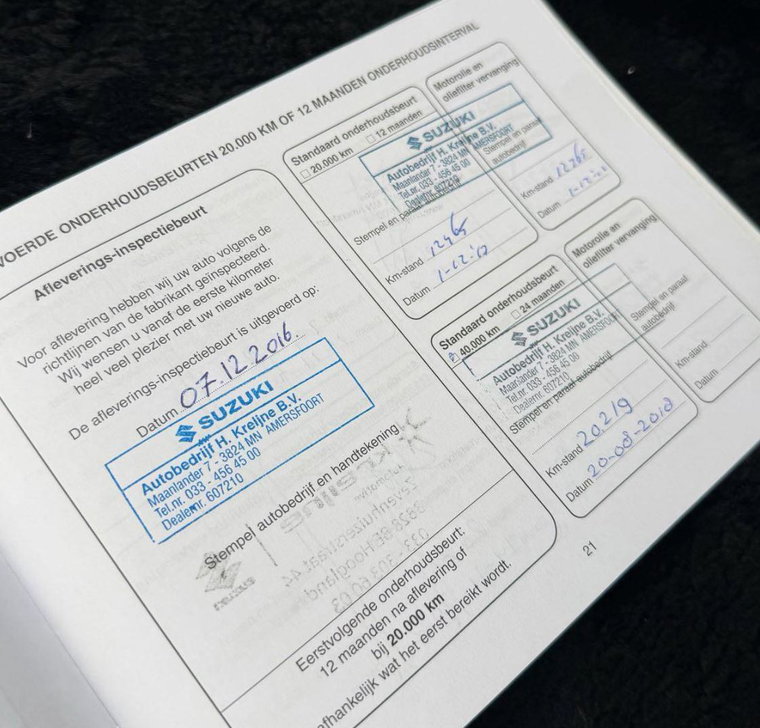 VOERDE ONDERHOUDSBEURTEN 20.000 KM OF 12 MAANDEN ONDERHOUDSINTERVAL
Afleverings-inspectiebeurt
Voor aflevering hebben wij uw auto volgens de
richtlijnen van de fabrikant geïnspecteerd.
Wij wensen u vanaf de eerste kilometer
heel veel plezier met uw nieuwe auto.
De afleverings-inspectiebeurt is uitgevoerd op:
Datum 07.12.2016.
SUZUKI
Autobedrijf H. Kreijne B.V.
Maanlander 7 - 3824 MN AMERSFOORT
Tel.nr. 033 - 456 45 00
Dealernr. 607210
Stempel autobedrijf en handtekening
Eerstvolgende onderhoudsbeurt:
12 maanden na aflevering of
bij 20.000 km
afhankelijk wat het eerst bereikt wordt.
Standaard onderhoudsbeurt
20.000 km 12 maanden
SUZUKI
Autobedrijf H. Kreijne B.V.
Maanlander 7 - 3824 MN AMERSFOORT
Tel.nr. 033 - 456 45 00
Dealernr. 607210
Stempel en paraaf
Km-stand 12465
Datum 1-12-'17
Motorolie en
oliefilter vervanging
Stempel en paraaf
autobedrijf
Km-stand 12465
Datum
Standaard onderhoudsbeurt
40.000 km 24 maanden
SUZUKI
Autobedrijf H. Kreijne B.V.
Maanlander 7 - 3824 MN AMERSFOORT
Tel.nr. 033 - 456 45 00
Dealernr. 607210
Stempel en paraaf autobedrijf
Km-stand 20219
Datum 20-08-2018
Motorolie en
oliefilter vervanging
Stempel en paraaf
autobedrijf
Km-stand
Datum
21